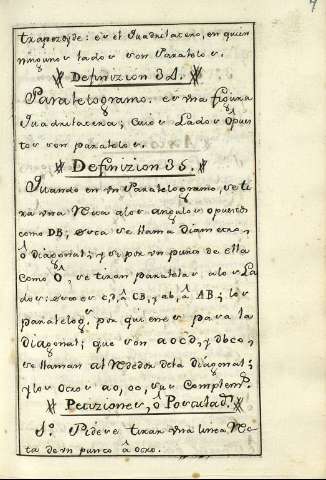 7
trapezoyde: es el Quadrilatero, en quien
ningunos lados son Paralelos.
Definizion 34.
Paralelogramo. es una figura
Quadrilatera; cuios Lados Opues
tos son paralelos.
Definizion 35.
Quando en un Paralelogramo, se ti
ra una Recta a los angulos opuestos
como DB; esta se llama Diametro,
ô diagonal; y si por un punto de ella
como O, se tiran paralelas a los La
dos; esto es cd, â CB, y ab, â AB; los
paralelog.s por quienes pasa la
Diagonal; que son aocd, y dbco,
se llaman al Rededor de la diagonal;
y los otros ao, oo, sus Complem.s
Petiziones, ô Postulad.s
1.º Pidese tirar una linea Rec
ta de un punto â otro.